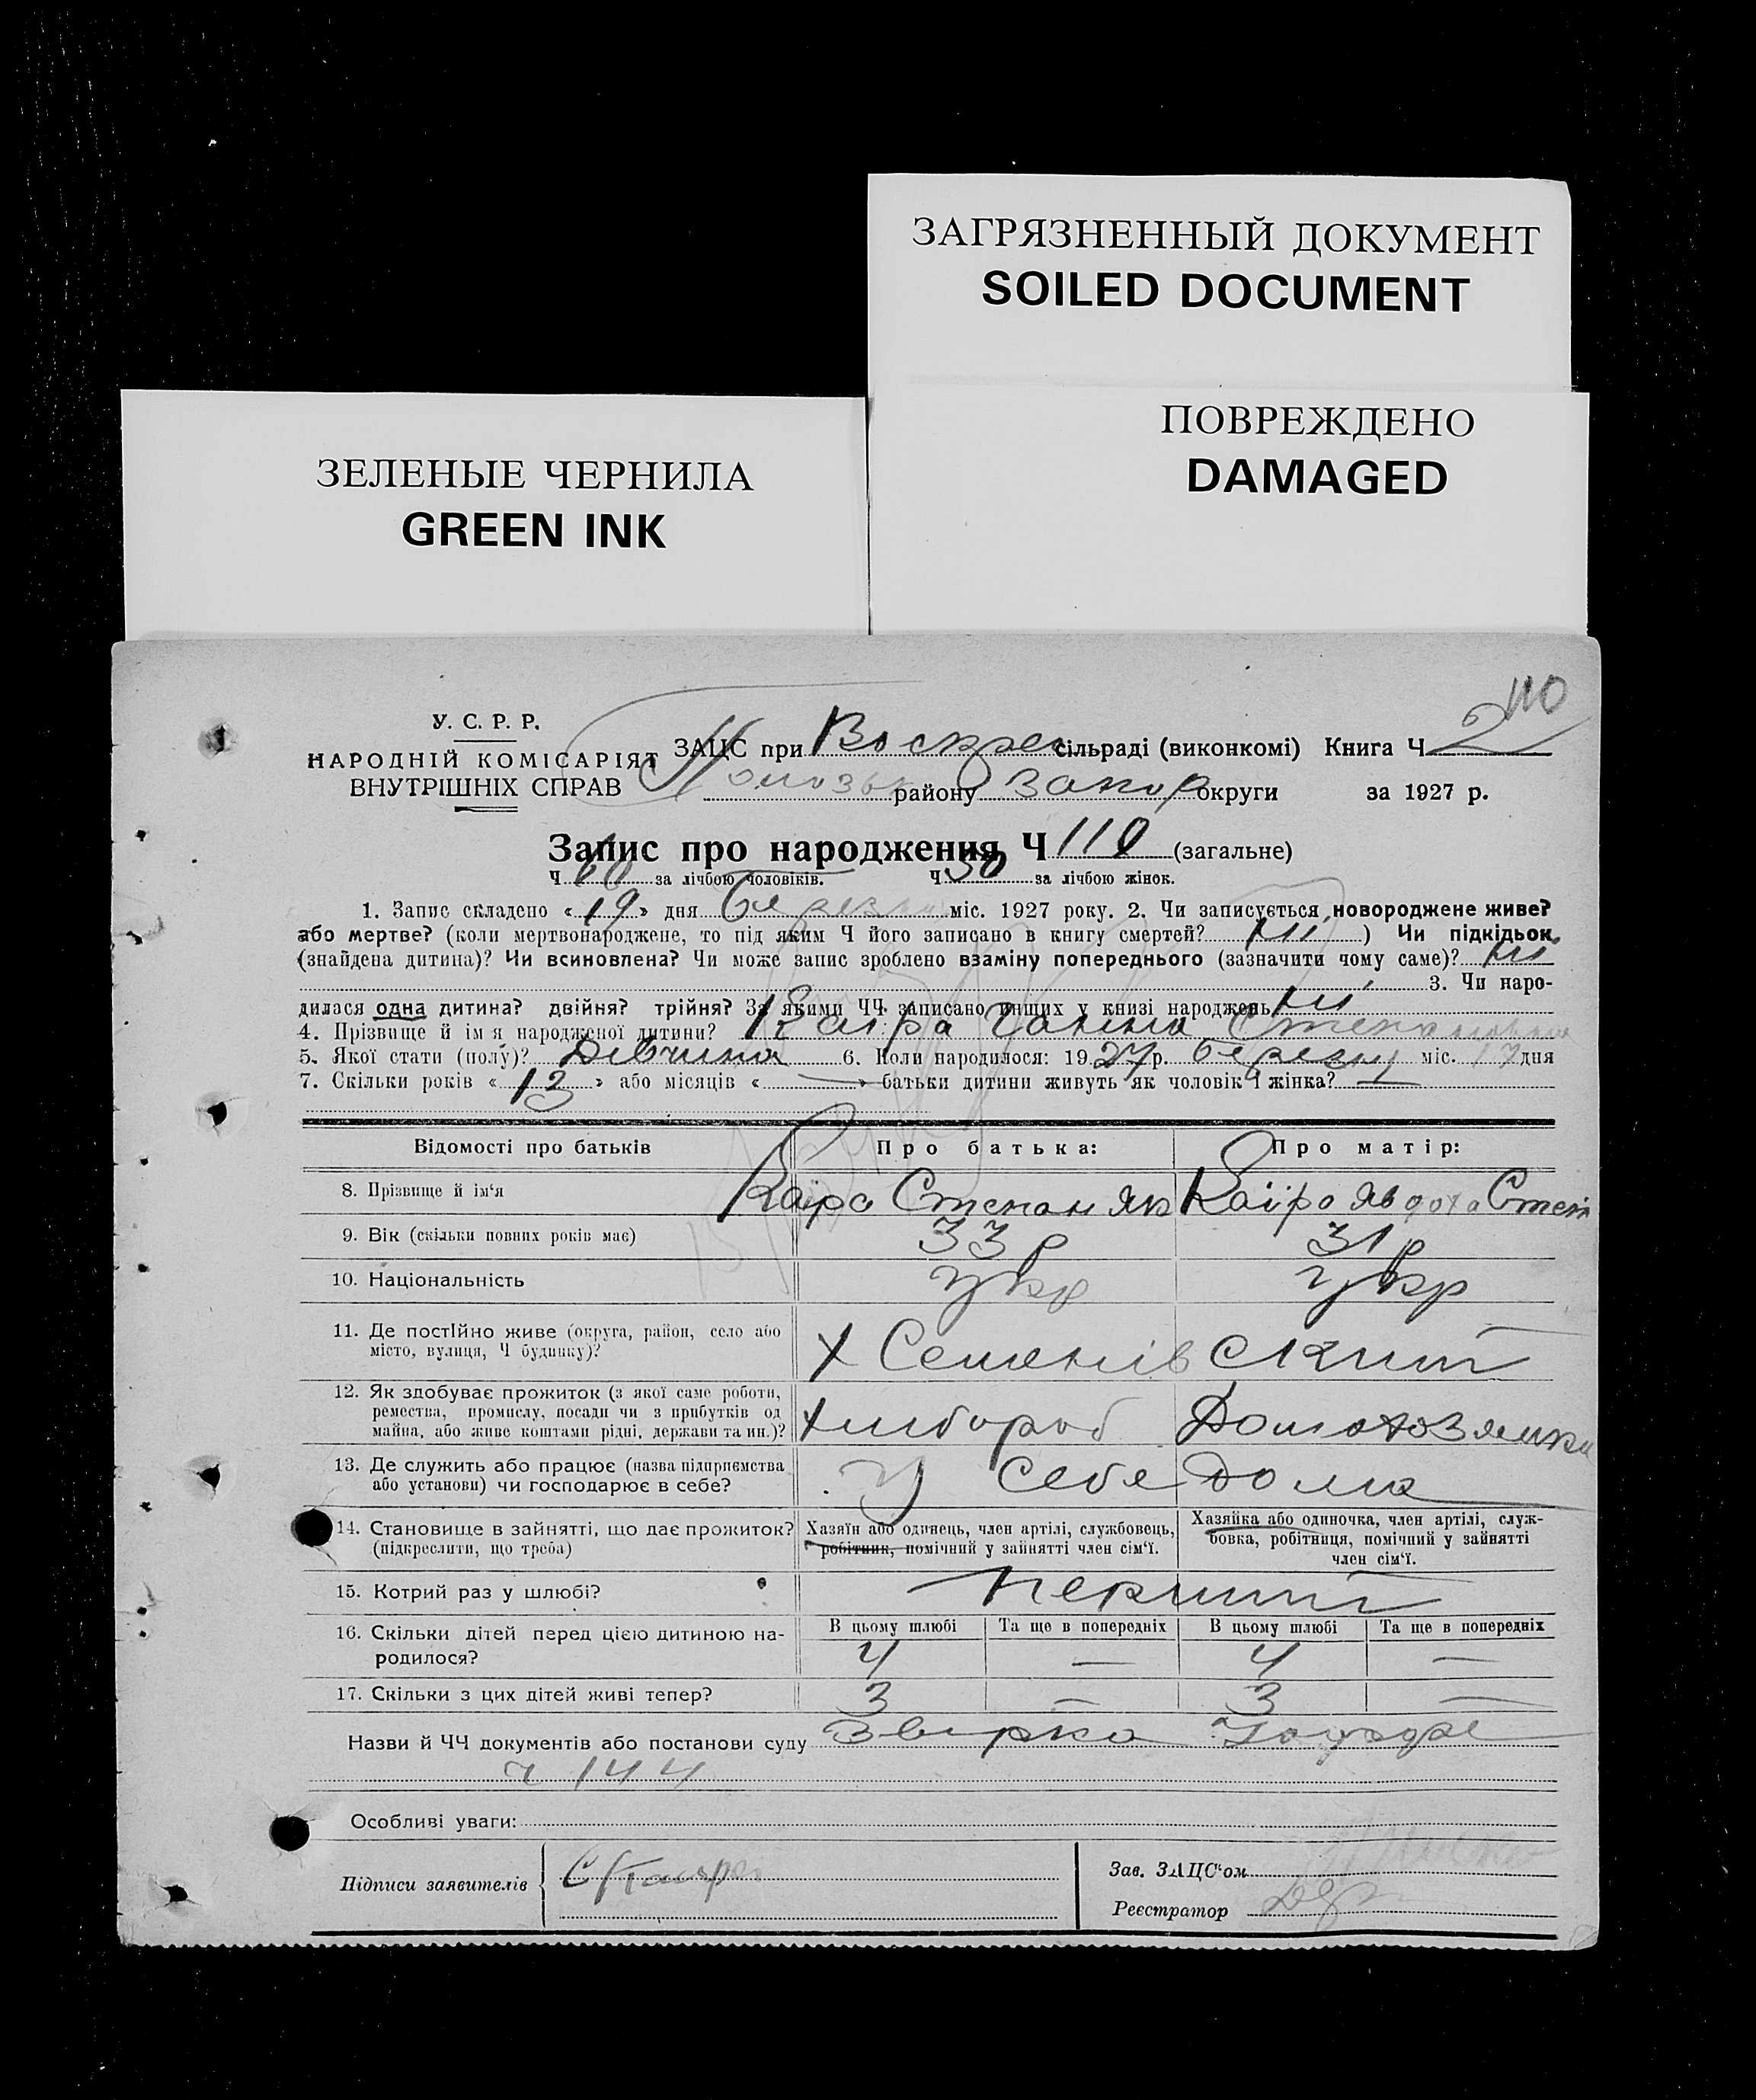 ЗАГРЯЗНЕННЫЙ ДОКУМЕНТ
SOILED DOCUMENT
ПОВРЕЖДЕНО
DAMAGED
ЗЕЛЕНЫЕ ЧЕРНИЛА
GREEN INK
110
У. С. Р. Р.
НАРОДНІЙ КОМІСАРІЯТ
ВНУТРІШНІХ СПРАВ
ЗАЦС при Воскре сільраді (виконкомі) Книга Ч 2
району Запор округи за 1927 р.
Запис про народження Ч 110 (загальне)
Ч 60 за лічбою чоловіків. Ч 50 за лічбою жінок.
1. Запис складено « 19 » дня Березня міс. 1927 року. 2. Чи записується новороджене живе?
або мертве? (коли мертвонароджене, то під яким Ч його записано в книгу смертей? ні ) Чи підкідьок
(знайдена дитина)? Чи всиновлена? Чи може запис зроблено взаміну попереднього (зазначити чому саме)? ні
3. Чи наро-
дилася одна дитина? двійня? трійня? За якими ЧЧ записано инших у книзі народжень ні
4. Прізвище й ім я народженої дитини? Каіра Ганна Степановна
5. Якої стати (полу)? Дівчина 6. Коли народилося: 1927 р. березня міс. 17 дня
7. Скільки років « 13 » або місяців « — » батьки дитини живуть як чоловік і жінка? —
Відомості про батьків Про батька: Про матір:
8. Прізвище й ім'я Каіра Степан Як Каіра Явдоха Степ
9. Вік (скільки повних років має) 33 р 31 р
10. Національність Укр Укр
11. Де постійно живе (округа, район, село або
місто, вулиця, Ч будинку)? Х Семенівский
12. Як здобуває прожиток (з якої саме роботи,
ремества, промислу, посади чи з прибутків од
майна, або живе коштами рідні, держави та ин.)? Хлібороб
13. Де служить або працює (назва підприємства
або установи) чи господарює в себе? У себе дома
14. Становище в зайнятті, що дає прожиток?
(підкреслити, що треба)
Хазяїн або одинець, член артілі, службовець,
робітник, помічний у зайнятті член сім'ї.
Хазяйка або одиночка, член артілі, служ-
бовка, робітниця, помічний у зайнятті
член сім'ї.
15. Котрий раз у шлюбі? перший
В цьому шлюбі Та ще в попередніх В цьому шлюбі Та ще в попередніх
16. Скільки дітей перед цією дитиною на-
родилося? 4 — 4 —
17. Скільки з цих дітей живі тепер? 3 — 3 —
Назви й ЧЧ документів або постанови суду
ч 144
Особливі уваги:
Підписи заявителів С Каіра
Зав. ЗАЦС'ом
Реєстратор